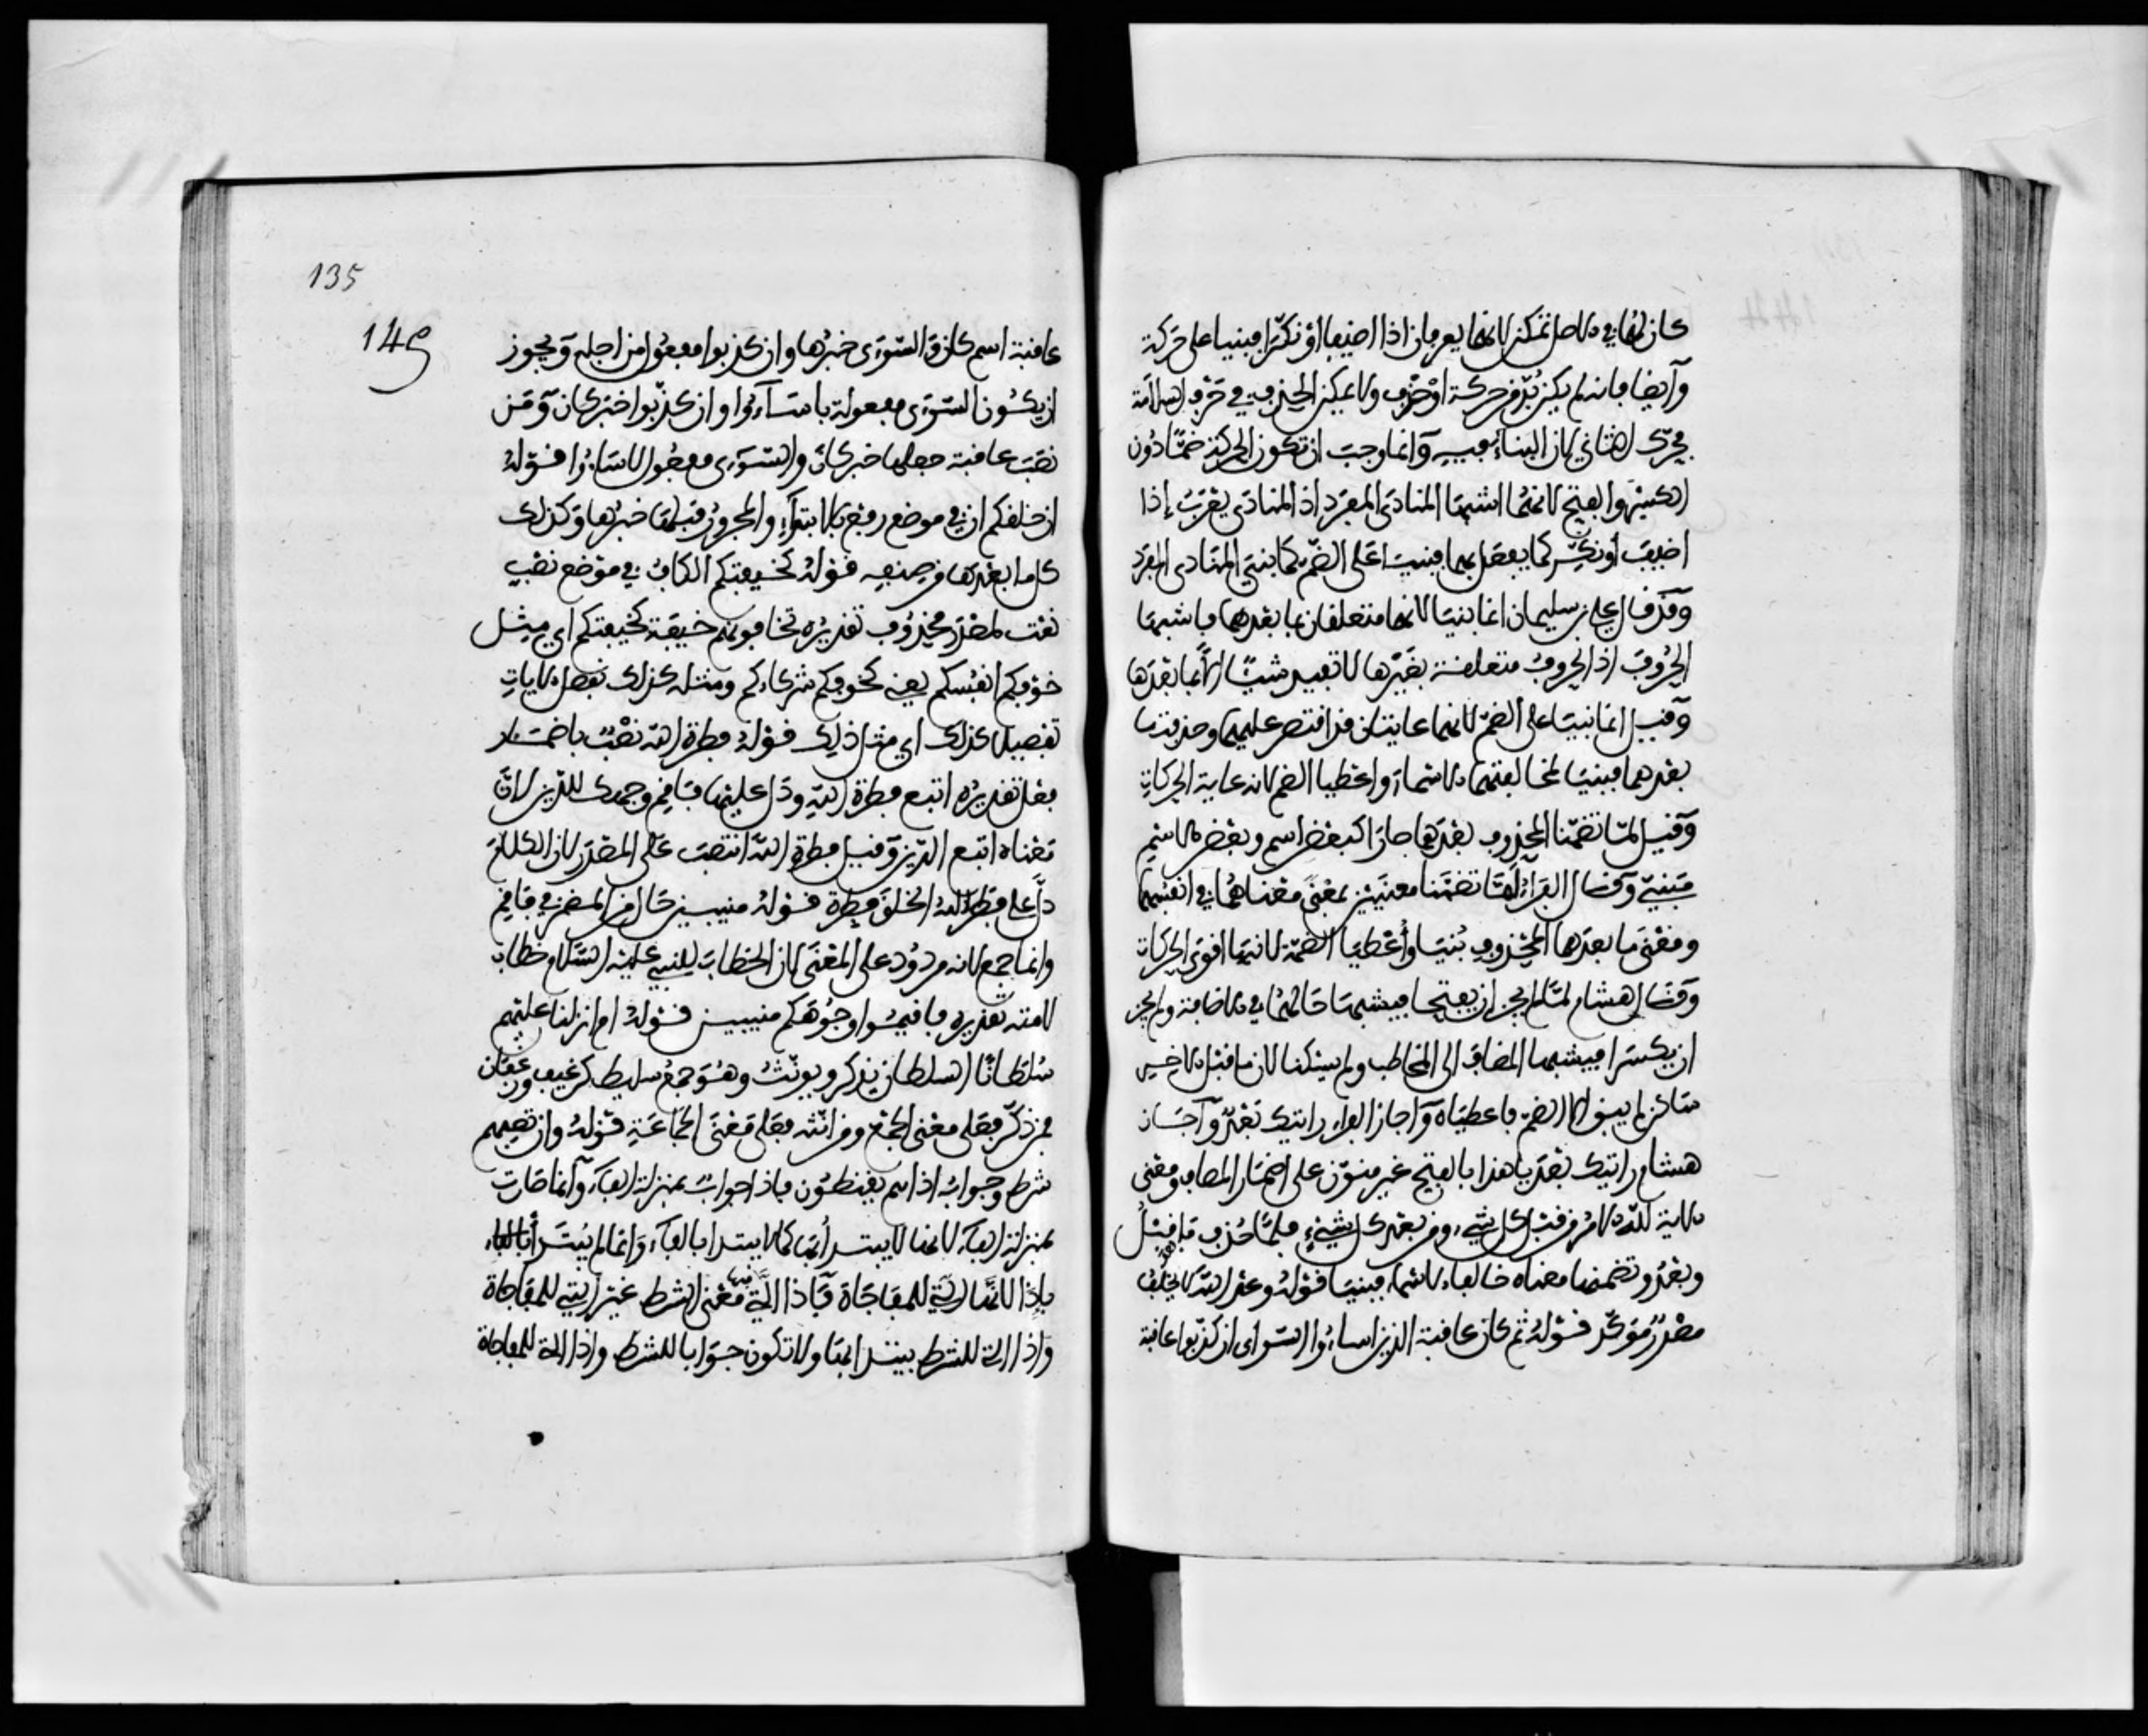 كان لهما في الاصل تمكن لانهما يعربان اذا اضيفا او نكرا فبنيا على حركة
وايضا فانه لم يكن بد من حركة او حذف ولا يمكن الحذف في حرف السلامة
فحرك الثاني لان البناء فيه وانما وجب ان تكون الحركة ضما دون
الكسر والفتح لانهما اشبها المنادى المفرد اذ المنادى يعرب إذا
اضيف أو نكر كما يفعل بهما فبنيا على الضم كما بني المنادى المفرد
وقد قال علي بن سليمان انما بنيتا لانهما متعلقان بما بعدهما فاشبهتا
الحروف اذ الحروف متعلقة بغيرها لا تفيد شيئا الا بما بعدها
وقيل انما بنيتا على الضم لانهما غايتان قد اقتصر عليهما وحذف ما
بعدهما فبنيتا لمخالفتهما الاسماء واعطيا الضم لانه غاية الحركات
وقيل لما تضمنا المحذوف بعدهما صارا كبعض اسم وبعض الاسم
مبني وقال الفراء لما تضمنا معنيين بمعنى معناهما في انفسهما
ومعنى ما بعدهما المحذوف بنيتا وأعطيا الضمة لانها اقوى الحركات
وقال هشام لما لم يجز ان يفتحا فيشبها حالهما في الاضافة ولم يجز
ان يكسرا فيشبها المضاف الى المخاطب ولم يسكنا لان ما قبل الاخير
ساكن لم يبق الا الضم فاعطياه واجاز الفراء رايتك بعد واجاز
هشام رايتك بعد يا هذا بالفتح غير منون على اضمار المضاف ومعنى
الاية لله الامر من قبل كل شيء ومن بعد كل شيء فلما حذف ما قبل
وبعد وتضمنها معناه خالفا الاسماء فبنيتا قوله وعد الله لا يخلف الله
مصدر موكد قوله ثم كان عاقبة الذين اساءوا السواى ان كذبوا عاقبة
135
145
عاقبة اسم كان والسوءى خبرها وان كذبوا مفعول من اجله ويجوز
ان يكون السوءى مفعولة باساءوا وان كذبوا خبر كان ومن
نصب عاقبة جعلها خبر كان والسوءى مفعول لاساءوا قوله
ان خلقكم ان في موضع رفع بالابتداء والمجرور قبلها خبرها وكذلك
كل ما بعدها من صنفه قوله كخيفتكم الكاف في موضع نصب
نعت لمصدر محذوف تقديره تخافونهم خيفة كخيفتكم اي مثل
خوفكم انفسكم يعني كخوفكم شركاءكم ومثله كذلك نفصل الايات
تفصيلا كذلك اي مثل ذلك قوله فطرة الله نصب باضمار
فعل تقديره اتبع فطرة الله ودل عليها فاقم وجهك للدين لان
معناه اتبع الدين وقيل فطرة الله انتصب على المصدر لان الكلام
دل على فطر الله الخلق فطرة قوله منيبين حال من المضمر في فاقم
وانما جمع لانه مردود على المعنى لان الخطاب للنبي عليه السلام خطاب
لامته تقديره فاقيموا وجوهكم منيبين قوله ام انزلنا عليهم
سلطانا السلطان يذكر ويونث وهو جمع سليط كرغيف ورغفان
فمن ذكر فعلى معنى الجمع ومن انثه فعلى معنى الجماعة قوله وان تصبهم
شرط وجوابه اذا هم يقنطون فاذا جواب بمنزلة الفاء وانما صارت
بمنزلة الفاء لانها لا يبتدأ بها كما لا يبتدا بالفاء وانما لم يبتدأ
باذا لانها التي للمفاجاة فاذا التي فيها معنى الشرط غير التي للمفاجاة
واذا التي للشرط يبتدا بها ولا تكون جوابا للشرط واذا التي للمفاجاة